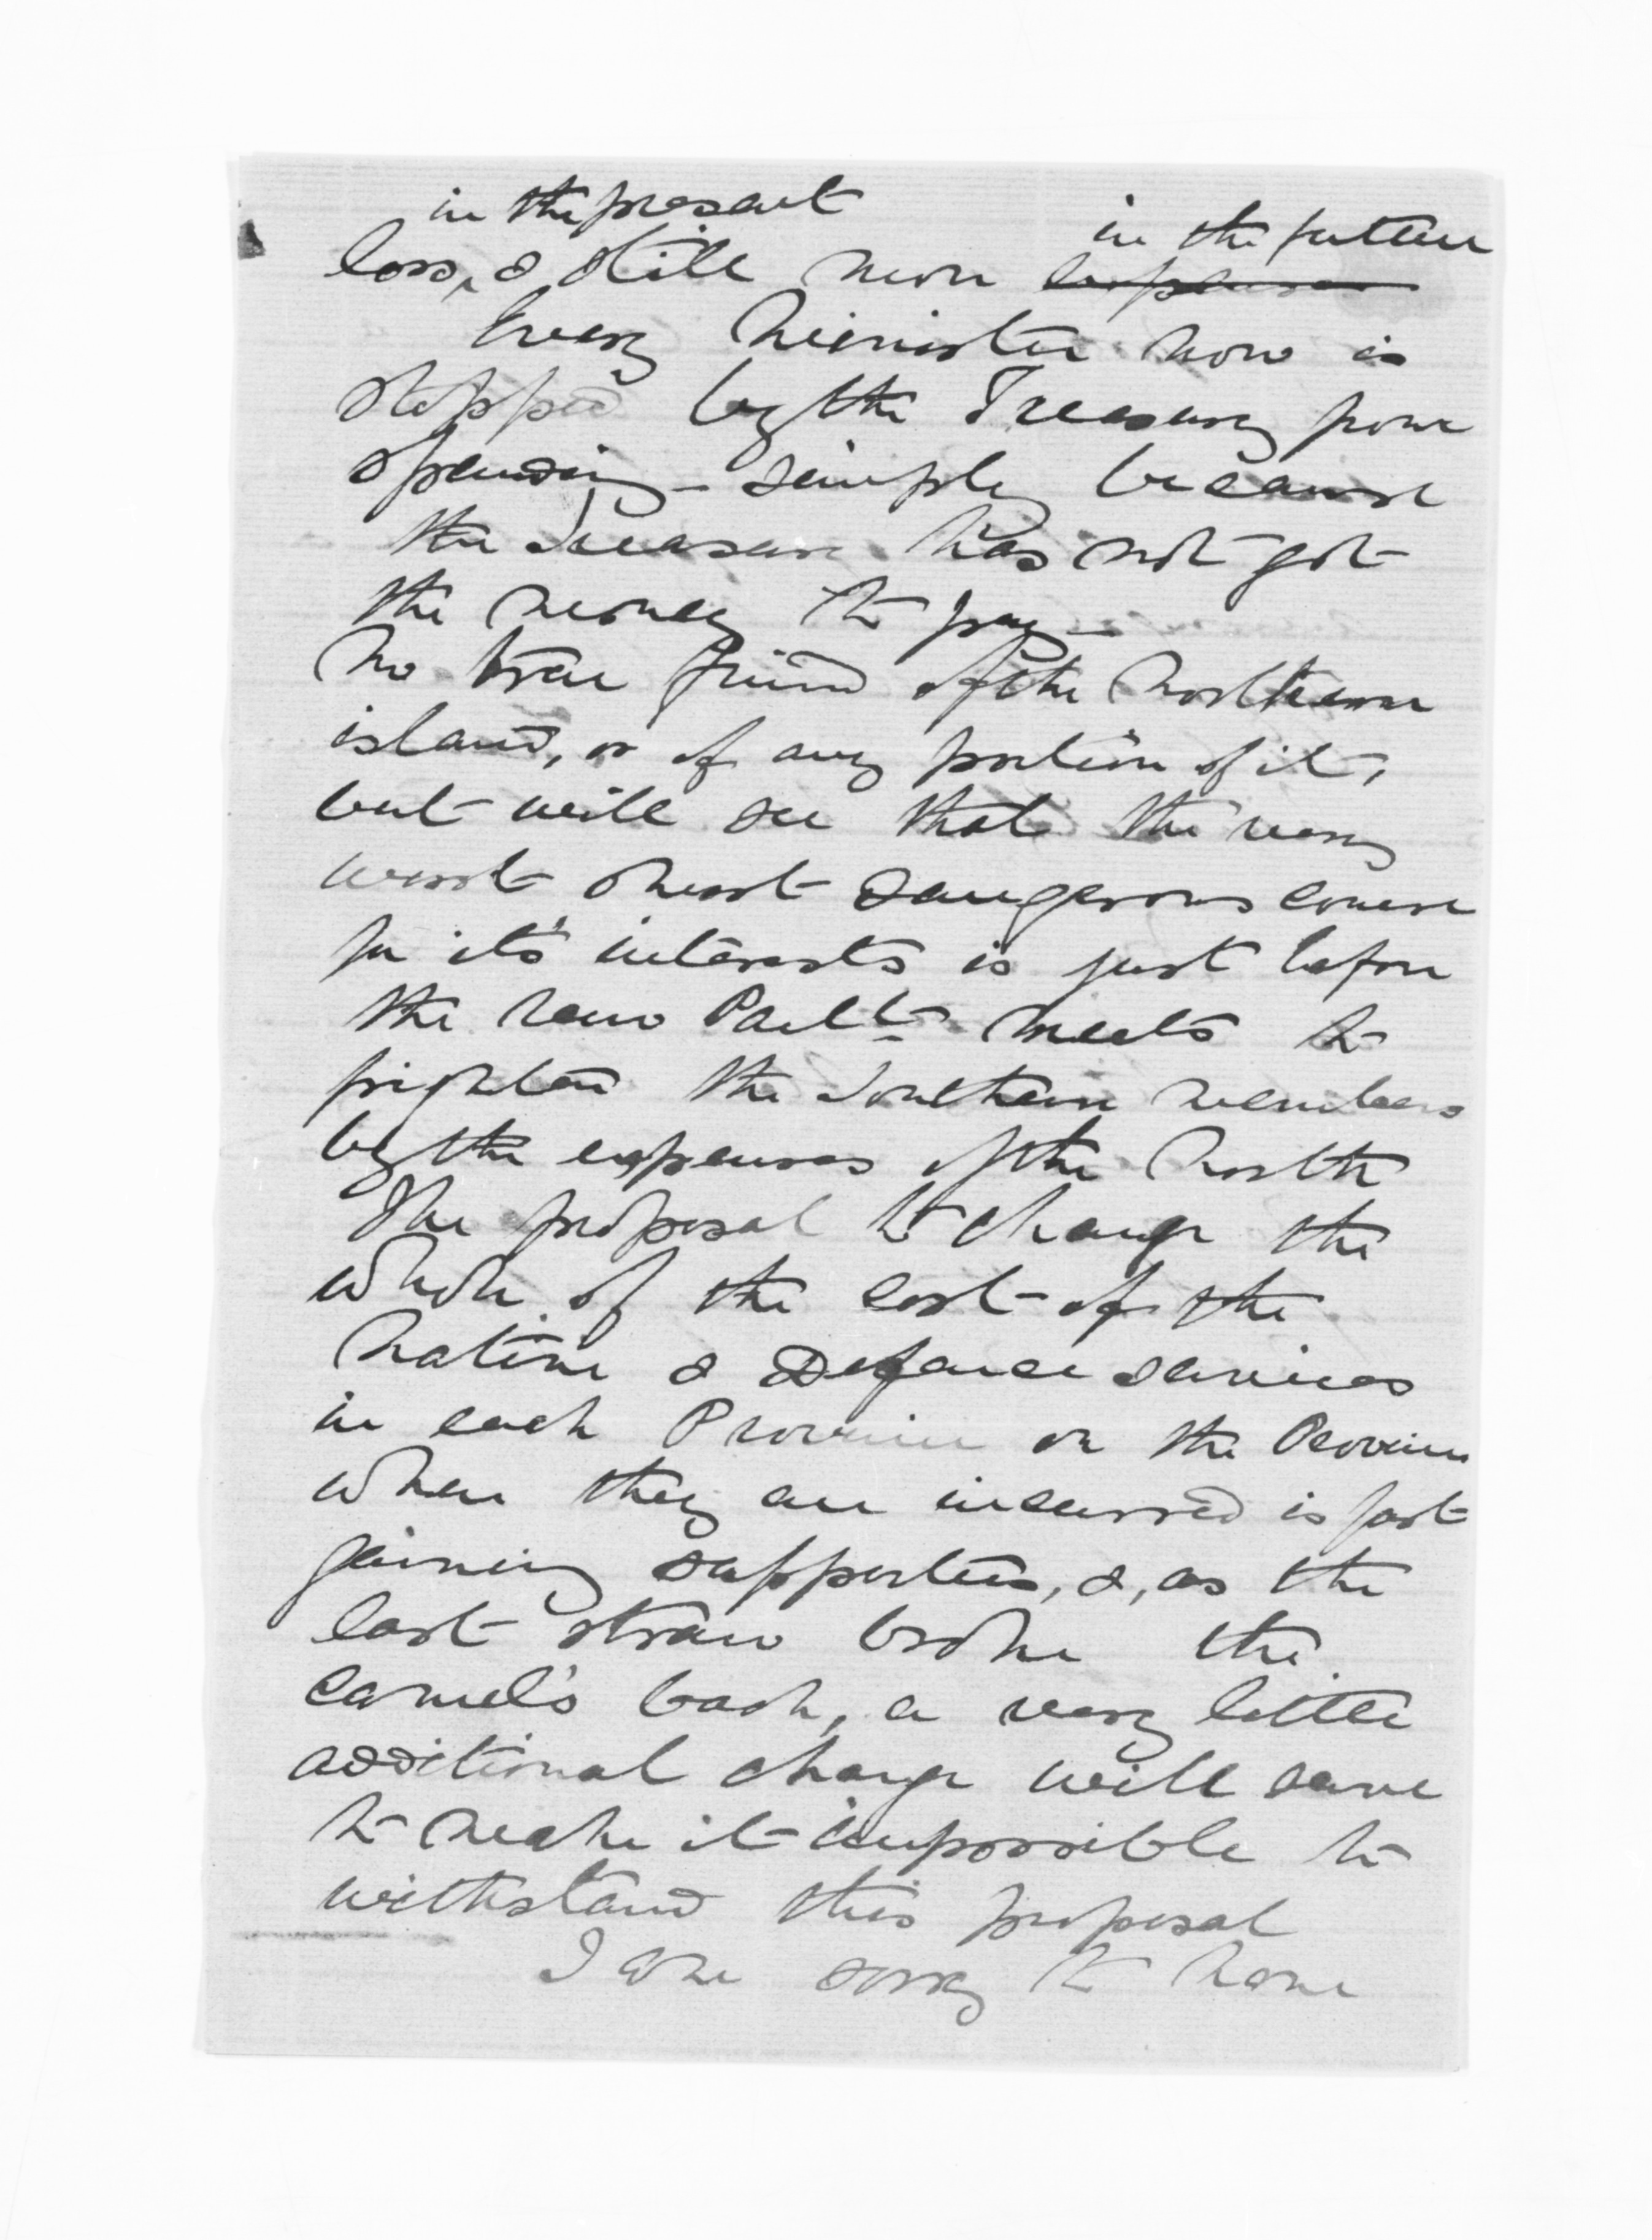 in the present
in the future
loss, & still more expenses
Every Minister now is
stopped by the Treasury from
spending - simply because
the Treasury has not got
the money to pay -
No true friend of the Northern
island, or of any portion of it,
but will see that the very
worst & most dangerous course
for it's interests is just before
the new Parlt meets to
frighten the Southern members
by the expenses of the North
The proposal to charge the
whole of the cost of the
Native & Defence services
in each Province on the Province
where they are incurred is fast
gaining supporters, &, as the
last straw broke the
camel's back, a very little
additional charge will serve
to make it impossible to
withstand this proposal
I am sorry to have